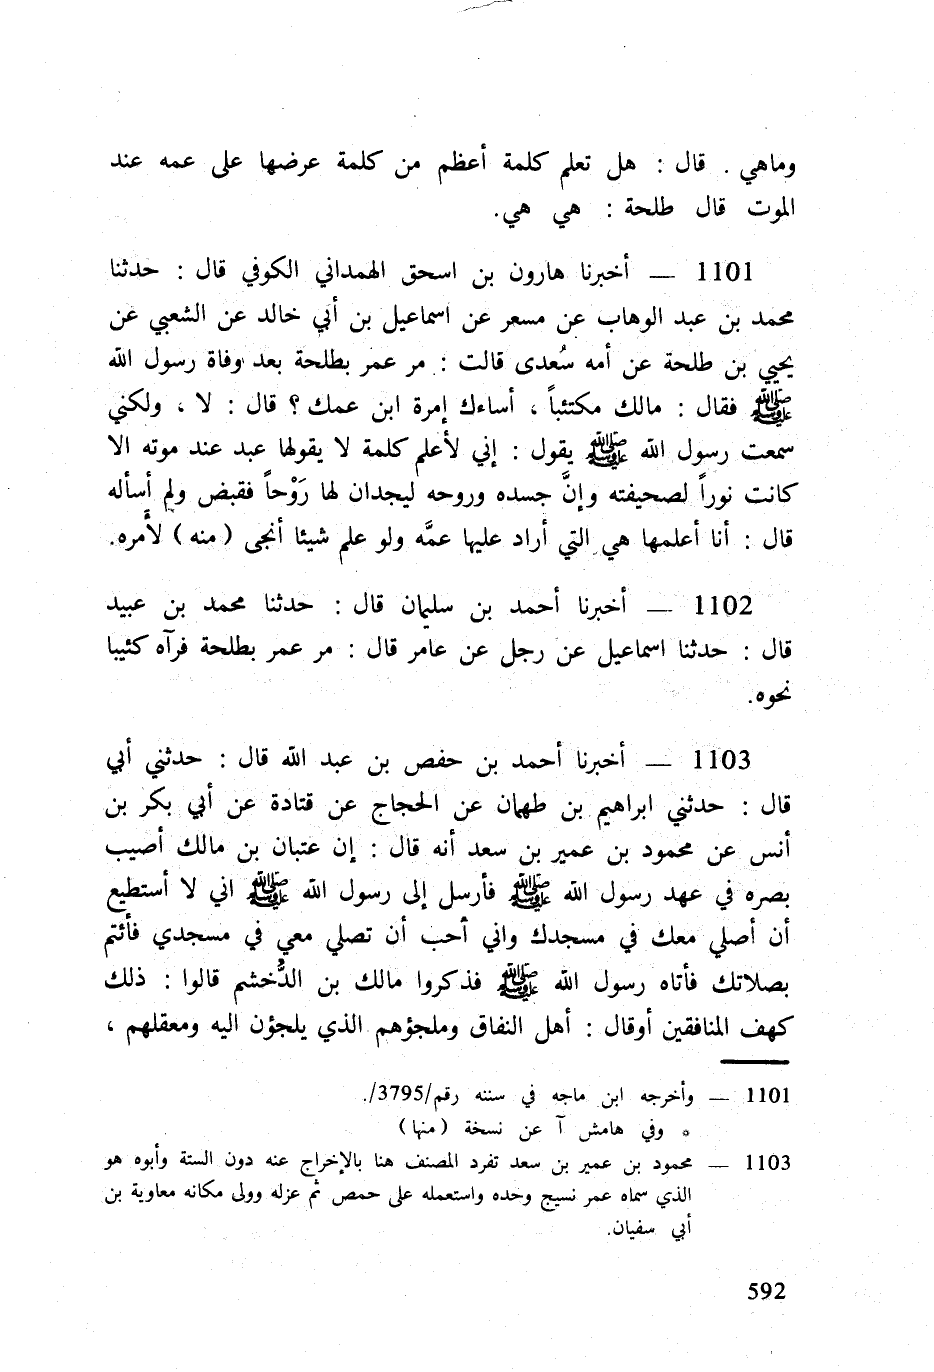 وماهي . قال : هل تعلم كلمة أعظم من كلمة عرضها على عمه عند
الموت قال طلحة : هي هي.
1101 — أخبرنا هارون بن اسحق الهمداني الكوفي قال : حدثنا
محمد بن عبد الوهاب عن مسعر عن اسماعيل بن أبي خالد عن الشعبي عن
يحيي بن طلحة عن أمه سُعدى قالت : مر عمر بطلحة بعد وفاة رسول الله
ﷺ فقال : مالك مكتئباً ، أساءك إمرة ابن عمك ؟ قال : لا ، ولكني
سمعت رسول الله ﷺ يقول : إني لأعلم كلمة لا يقولها عبد عند موته الا
كانت نوراً لصحيفته وإنَّ جسده وروحه ليجدان لها رَوْحاً فقبض ولم أسأله
قال : أنا أعلمها هي التي أراد عليها عمَّه ولو علم شيئا أنجى ( منه ) لأَمره.
1102 — أخبرنا أحمد بن سليمان قال : حدثنا محمد بن عبيد
قال : حدثنا اسماعيل عن رجل عن عامر قال : مر عمر بطلحة فرآه كئيبا
نحوه.
1103 — أخبرنا أحمد بن حفص بن عبد الله قال : حدثني أبي
قال : حدثني ابراهيم بن طهمان عن الحجاج عن قتادة عن أبي بكر بن
أنس عن محمود بن عمير بن سعد أنه قال : إن عتبان بن مالك أصيب
بصره في عهد رسول الله ﷺ فأرسل إلى رسول الله ﷺ اني لا أستطيع
أن أصلي معك في مسجدك واني أحب أن تصلي معي في مسجدي فأئتم
بصلاتك فأتاه رسول الله ﷺ فذكروا مالك بن الدُّخشم قالوا : ذلك
كهف المنافقين أوقال : أهل النفاق وملجؤهم الذي يلجؤن اليه ومعقلهم ،
1101 — وأخرجه ابن ماجه في سننه رقم/3795/.
* وفي هامش آ عن نسخة ( منها )
1103 — محمود بن عمير بن سعد تفرد المصنف هنا بالإخراج عنه دون الستة وأبوه هو
الذي سماه عمر نسيج وحده واستعمله على حمص ثم عزله وولى مكانه معاوية بن
أبي سفيان.
592